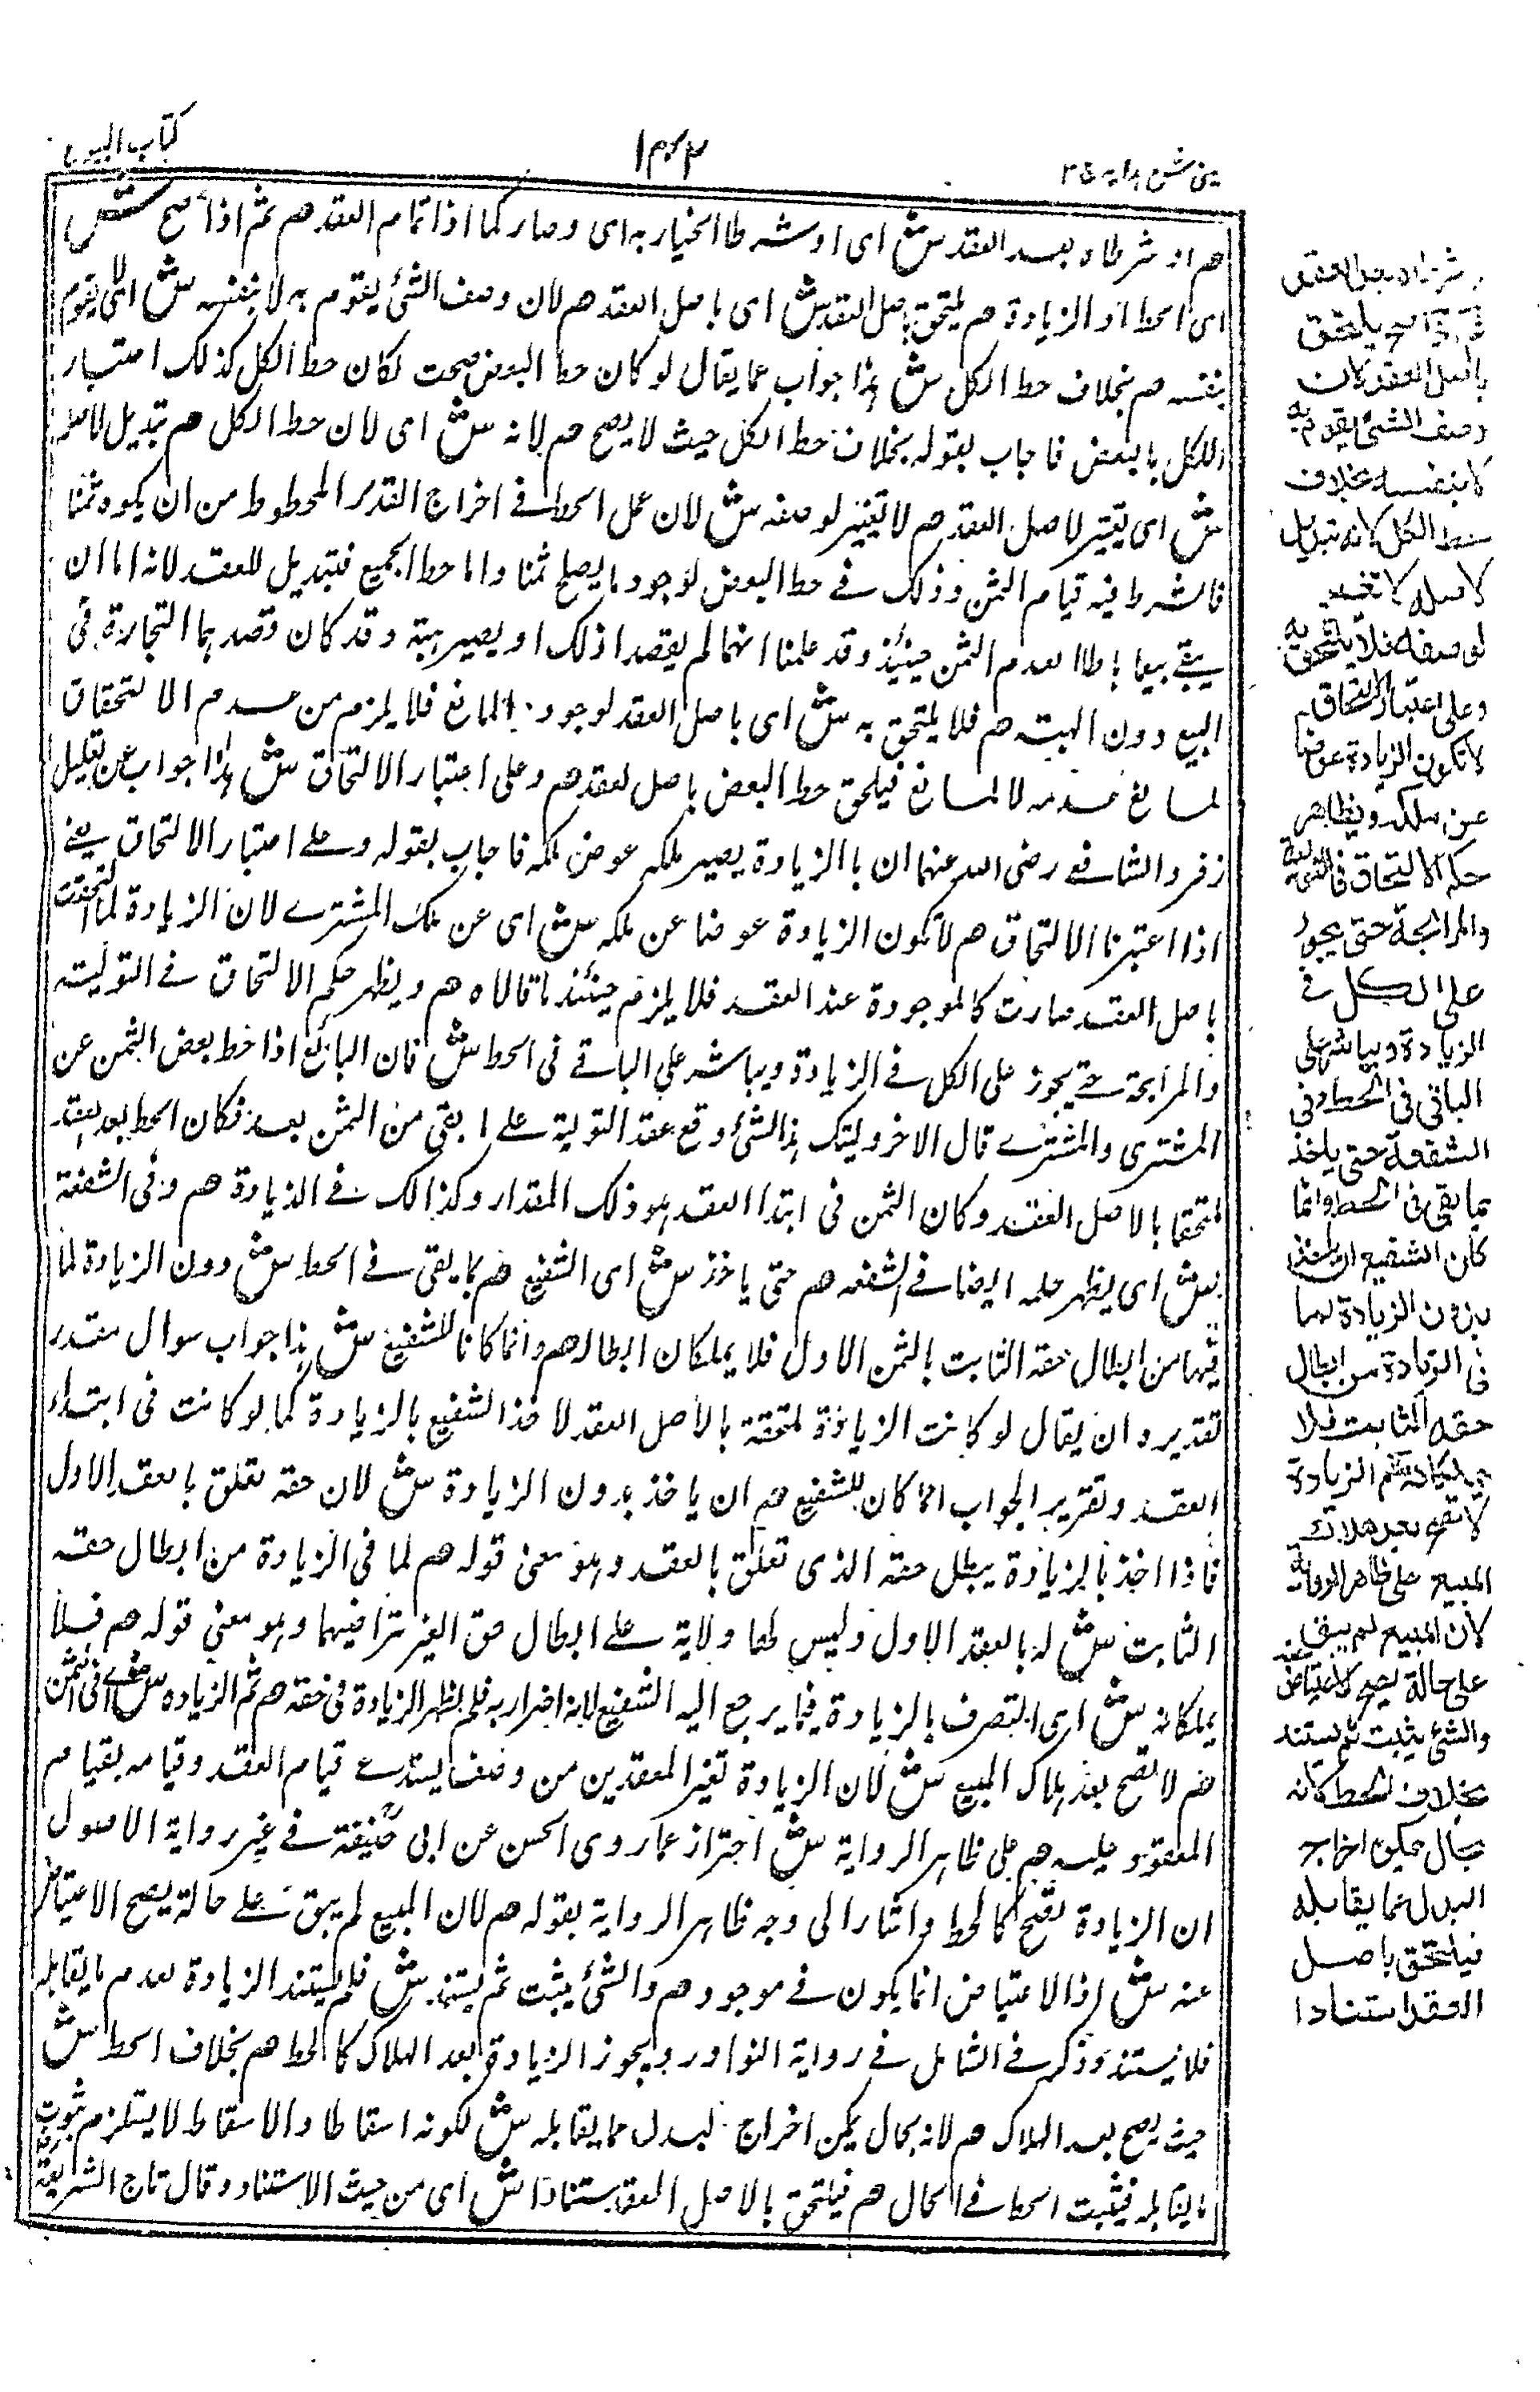 كتاب البيوع
١٣٢
عينى شرح هدايه ج٣
هم او شرطاه بعد العقد ش اى او شرطا الخيار به اى وصار كما اذا تمام العقد هم ثم اذا صح ش
اى الحط او الزيادة هم يلتحق باصل العقد ش اى باصل العقد هم لان وصف الشئ يقوم به لا بنفسه ش اى لا يقوم
بنفسه هم بخلاف حط الكل ش هذا جواب عما يقال لو كان حط البعض صحت لكان حط الكل كذلك اعتبار
للكل بالبعض فاجاب بقوله بخلاف حط الكل حيث لا يصح هم لانه ش اى لان حط الكل هم تبديل لاصله
ش اى تغيير لاصل العقد هم لا تغيير لوصفه ش لان عمل الحط فى اخراج القدر المحطوط من ان يكون ثمنا
فالشرط فيه قيام الثمن وذلك فى حط البعض لوجود ما يصلح ثمنا واما حط الجميع فتبديل للعقد لانه اما ان
يبقى بيعا باطلا لعدم الثمن حينئذ وقد علمنا انهما لم يقصدا ذلك او يصير هبة وقد كان قصدهما التجارة فى
البيع دون الهبة هم فلا يلتحق به ش اى باصل العقد لوجود المانع فلا يلزم من عدم الالتحاق
لمانع عدمه لا لمانع فيلحق حط البعض باصل لعقد هم وعلى اعتبار الالتحاق ش هذا جواب عن تعليل
زفر والشافعى رضى الله عنهما ان بالزيادة يصير ملكه عوض ملكه فاجاب بقوله وعلى اعتبار الالتحاق يعنى
اذا اعتبرنا الالتحاق هم لا تكون الزيادة عوضا عن ملكه ش اى عن ملك المشترى لان الزيادة لما التحقت
باصل العقد صارت كالموجودة عند العقد فلا يلزم حينئذ ما قالاه هم ويظهر حكم الالتحاق فى التولية
والمرابحة حتى يجوز على الكل فى الزيادة ويباشر على الباقى فى الحط ش فان البائع اذا حط بعض الثمن عن
المشترى والمشترى قال الاخر وليتك هذا الشئ وقع عقد التولية على ما بقى من الثمن بعد فكان الحط بعد العقد
ملتحقا بالاصل العقد وكان الثمن فى ابتدا العقد هو ذلك المقدار وكذالك فى الزيادة هم وفى الشفعة
ش اى يظهر حكمه ايضا فى الشفعه هم حتى ياخذ ش اى الشفيع هم بما يبقى فى الحط ش دون الزيادة لما
فيها من ابطال حقه الثابت بالثمن الاول فلا يملكان ابطاله هم وانما كان للشفيع ش هذا جواب سوال مقدر
تقديره ان يقال لو كانت الزيادة ملتحقة بالاصل العقد لاخذ الشفيع بالزيادة كما لو كانت فى ابتداء
العقد وتقرير الجواب انما كان للشفيع هم ان ياخذ بدون الزيادة ش لان حقه تعلق بالعقد الاول
فاذا اخذ بالزيادة يبطل حقه الذى تعلق بالعقد وهو معنى قوله هم لما فى الزيادة من ابطال حقه
الثابت ش له بالعقد الاول وليس لهما ولاية على ابطال حق الغير بتراضيهما وهو معنى قوله هم فلا
يملكانه ش اى التصرف بالزيادة فيما يرجع اليه الشفيع لانه اضرار به فلم يظهر الزيادة فى حقه هم ثم الزيادة ش اى فى الثمن
هم لا تصح بعد هلاك المبيع ش لان الزيادة تغير العقدين من وصف يستدعى قيام العقد وقيامه بقيام
المعقود عليه هم على ظاهر الرواية ش احتراز عما روى الحسن عن ابى حنيفة فى غير رواية الاصول
ان الزيادة تصح كالحط واشار الى وجه ظاهر الرواية بقوله هم لان المبيع لم يبق على حالة يصح الاعتياض
عنه ش اذ الاعتياض انما يكون فى موجود هم والشئ يثبت ثم يستند ش فلم يستند الزيادة لعدم ما يقابله
فلا يستند وذكر فى الشامل فى رواية النوادر ويجوز الزيادة بعد الهلاك كالحط هم بخلاف الحط ش
حيث يصح بعد الهلاك هم لانه بحال يمكن اخراج البدل مما يقابله ش لكونه اسقاطا والاسقاط لا يستلزم ثبوت
ما يقابله فيثبت الحط فى الحال هم فيلتحق بالاصل العقد استنادا ش اى من حيث الاستناد وقال تاج الشريعة
او شرطاه بعد العقد
ثم اذا صح يلتحق
باصل العقد لان
وصف الشئ يقوم به
لا بنفسه بخلاف
حط الكل لانه تبديل
لاصله لا تغيير
لوصفه فلا يلتحق به
وعلى اعتبار الالتحاق
لا تكون الزيادة عوضا
عن ملكه ويظهر
حكم الالتحاق فى التولية
والمرابحة حتى يجوز
على الكل فى
الزيادة ويباشر على
الباقى فى الحط وفى
الشفعة حتى ياخذ
بما بقى فى الحط وانما
كان الشفيع ان ياخذ
بدون الزيادة لما
فى الزيادة من ابطال
حقه الثابت فلا
يملكانه ثم الزيادة
لا تصح بعد هلاك
المبيع على ظاهر الرواية
لان المبيع لم يبق
على حالة يصح الاعتياض عنه
والشئ يثبت ثم يستند
بخلاف الحط لانه
بحال يمكن اخراج
البدل عما يقابله
فيلتحق باصل
العقد استنادا